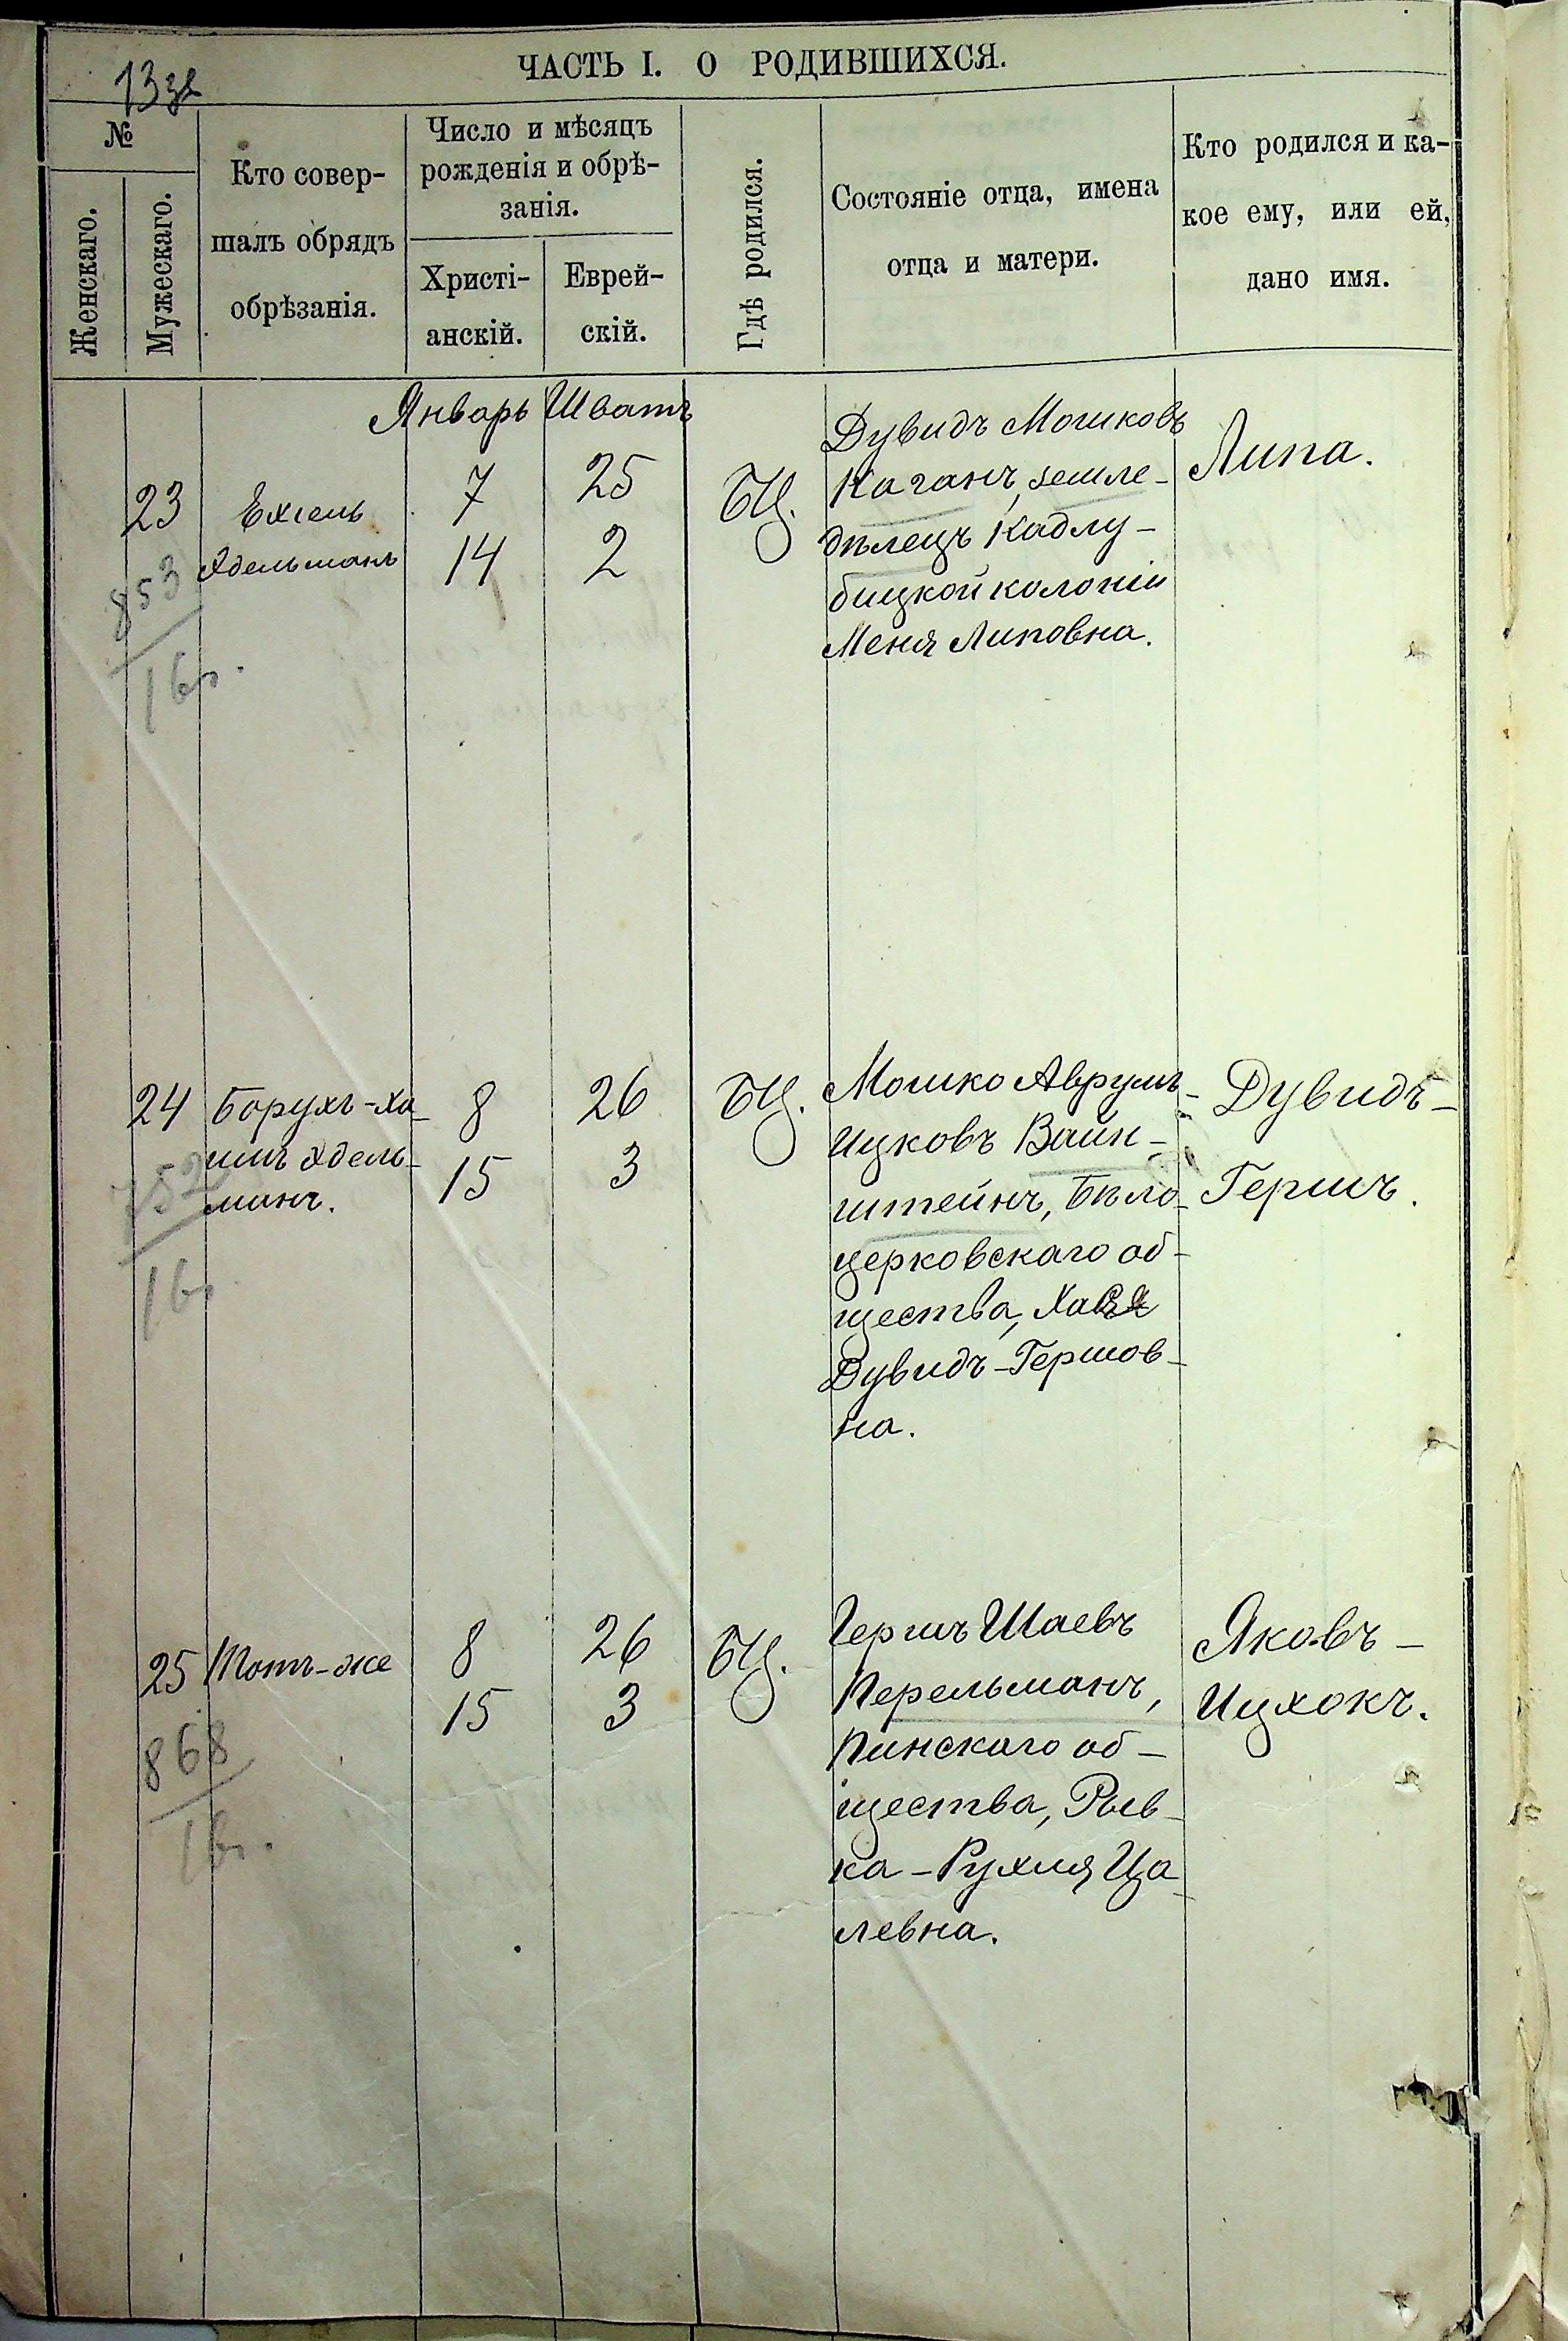 ЧАСТЬ I. О РОДИВШИХСЯ.
№
Женскаго.
Мужескаго.
Кто совер-
шалъ обрядъ
обрѣзанія.
Число и мѣсяцъ
рожденія и обрѣ-
занія.
Христі-
анскій.
Еврей-
скій.
Гдѣ родился.
Состояніе отца, имена
отца и матери.
Кто родился и ка-
кое ему, или ей,
дано имя.
Январь Шватъ
23
853
Ехіель
Эдельманъ
7 25
14 2
БЦ.
Дувидъ Мошковъ
Каганъ, земле-
дѣлецъ Кадлу-
бицкой колоніи
Меня Липовна.
Липа.
24
Борухъ-Ха-
имъ Эдель-
манъ.
8 26
15 3
БЦ.
Мошко Аврумъ-
Ицковъ Вайн-
штейнъ, Бѣло-
церковскаго об-
щества,
Дувидъ-Гершов-
на.
Дувидъ-
Гершъ.
25
868
Тотъ-же
8 26
15 3
БЦ.
Гершъ Шаевъ
Перельманъ,
Пинскаго об-
щества, Рыв-
ка-Рухля Ца-
левна.
Яковъ-
Ицхокъ.